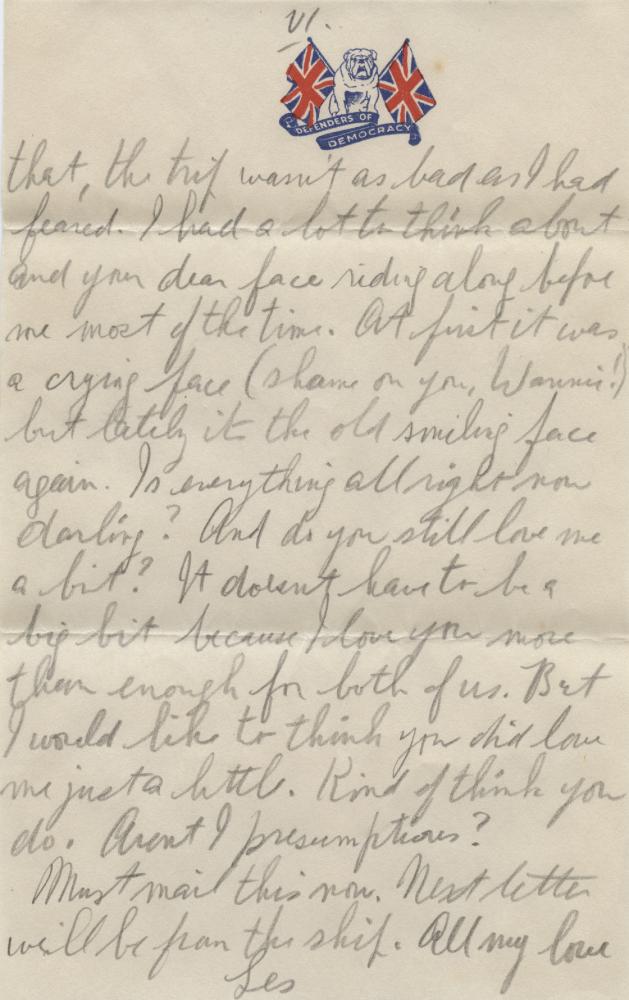 VI.
DEFENDERS OF
DEMOCRACY
that, the trip wasn't as bad as I had
feared. I had a lot to think about
and your dear face riding along before
me most of the time. At first it was
a crying face (shame on you, Wannie!)
but lately it's the old smiling face
again. Is everything all right now
darling? And do you still love me
a bit? It doesn't have to be a
big bit because I love you more
than enough for both of us. But
I would like to think you did love
me just a little. Kind of think you
do. Arent I presumptious?
Must mail this now. Next letter
will be from the ship. All my love
Les